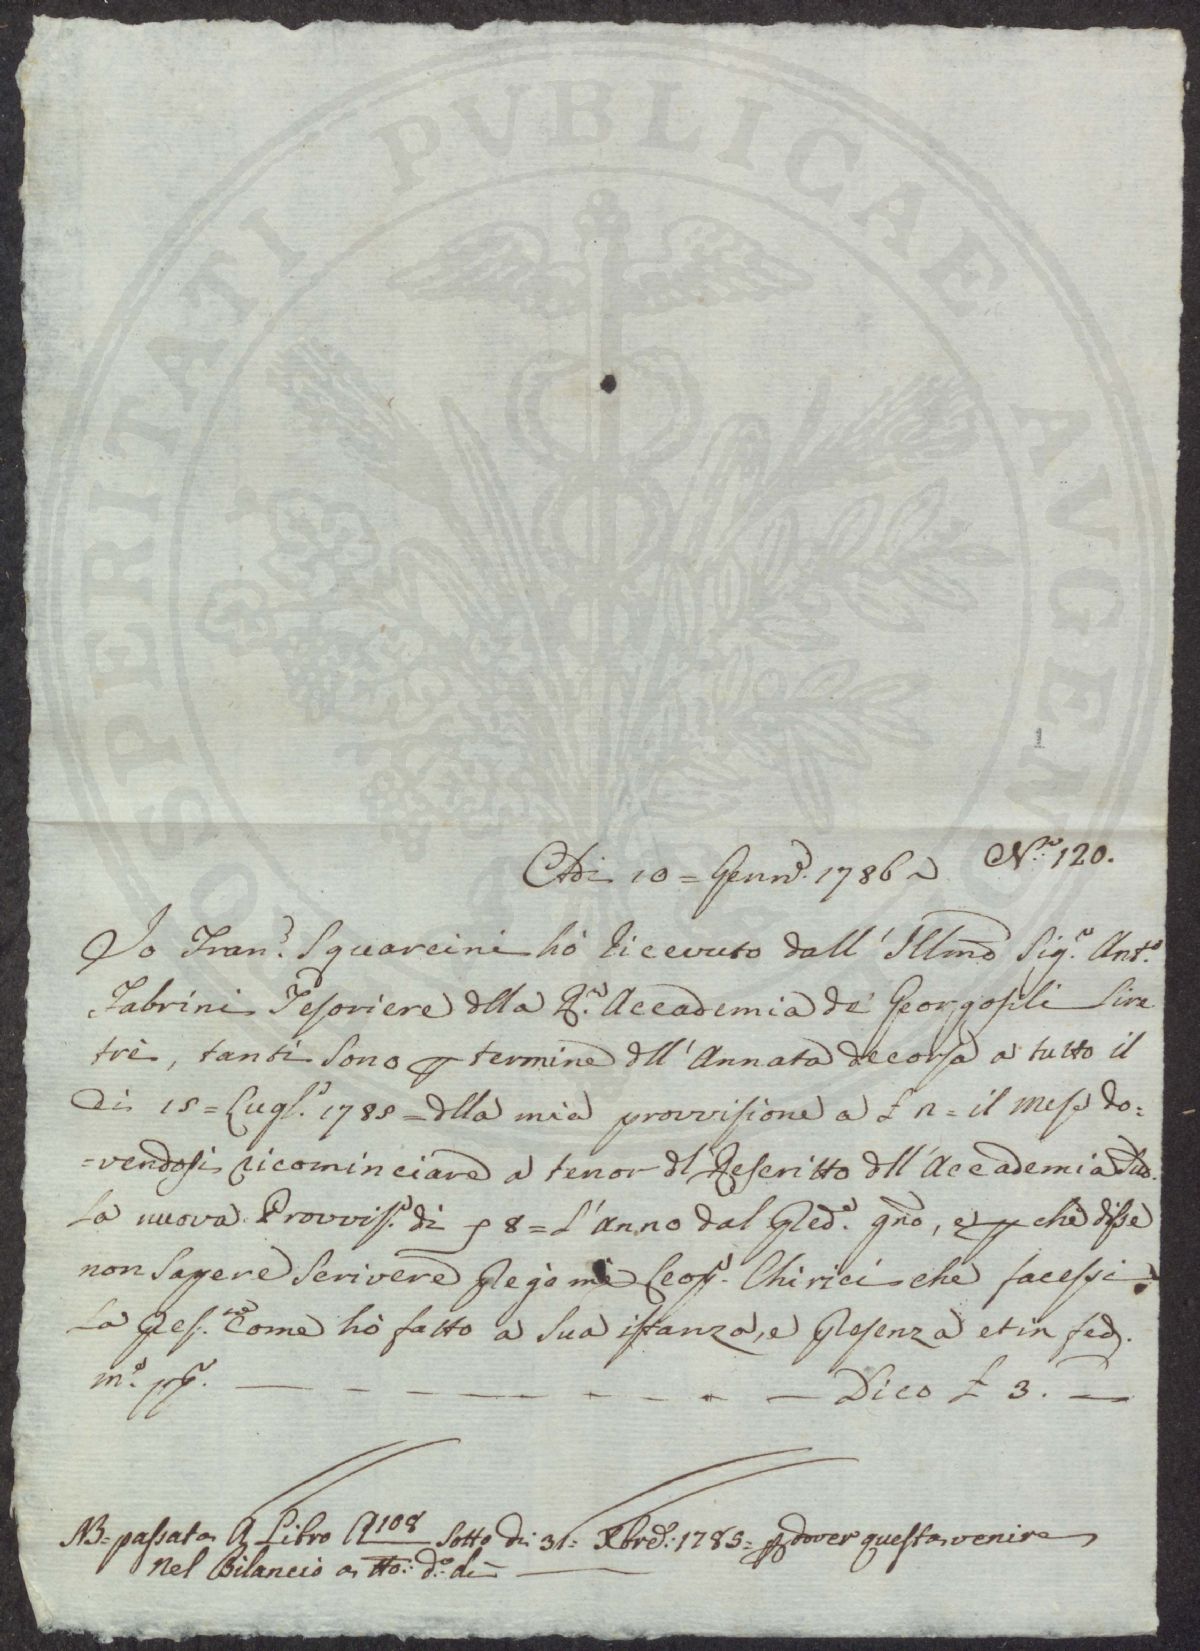 PROSPERITATI PUBLICAE AUGENDAE
Adi 10 = Genn.o 1786
N.ro 120.
Io Fran.o Squarcini hò ricevuto dall' Illmo Sig.e Ant.o
Fabrini Tesoriere dlla R.e Accademia de' Georgofili Lire
trè, tanti sono p termine dll' Annata decorsa a tutto il
Di 15 = Lugl.o 1785 = dlla mia provvisione a £ n = il mese do=
=vendosi ricominciare a tenor dl' Rescritto dll' Accademia
La nuova Provvis.e di 8 = L'anno dal Pled.o gno, e p chè disse
non sapere scrivere Pregò mè Leop.o Chirici che facessi
La Pres.te come hò fatto a sua istanza, e Presenza et in fed.
m.o pp.a — — — — — — — Dico £ 3. —
NB = passata A Libro A 108 sotto di 31 = Xbre: 1785 = p dover questa venire
Nel Bilancio a tto: d.o di —